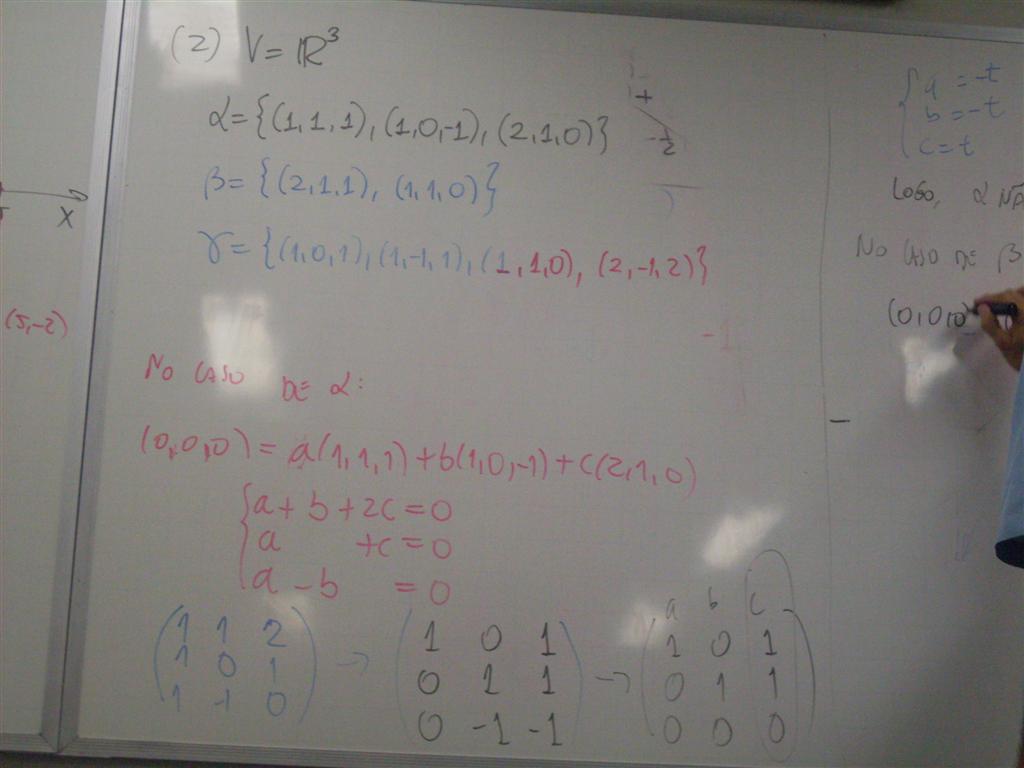 (2) V = ℝ³
α = {(1,1,1), (1,0,-1), (2,1,0)}
β = {(2,1,1), (1,1,0)}
γ = {(1,0,1), (1,-1,1), (1,1,0), (2,-1,2)}
NO CASO DE α:
(0,0,0) = a(1,1,1) + b(1,0,-1) + c(2,1,0)
a + b + 2c = 0
a + c = 0
a - b = 0
1 1 2 → 1 0 1 → a b c
1 0 1 0 1 1 1 0 1
1 -1 0 0 -1 -1 0 1 1
0 0 0
X
(5,-2)
+
-1/2
-1
a = -t
b = -t
c = t
LOGO, α
NO CASO DE β
(0,0,0)